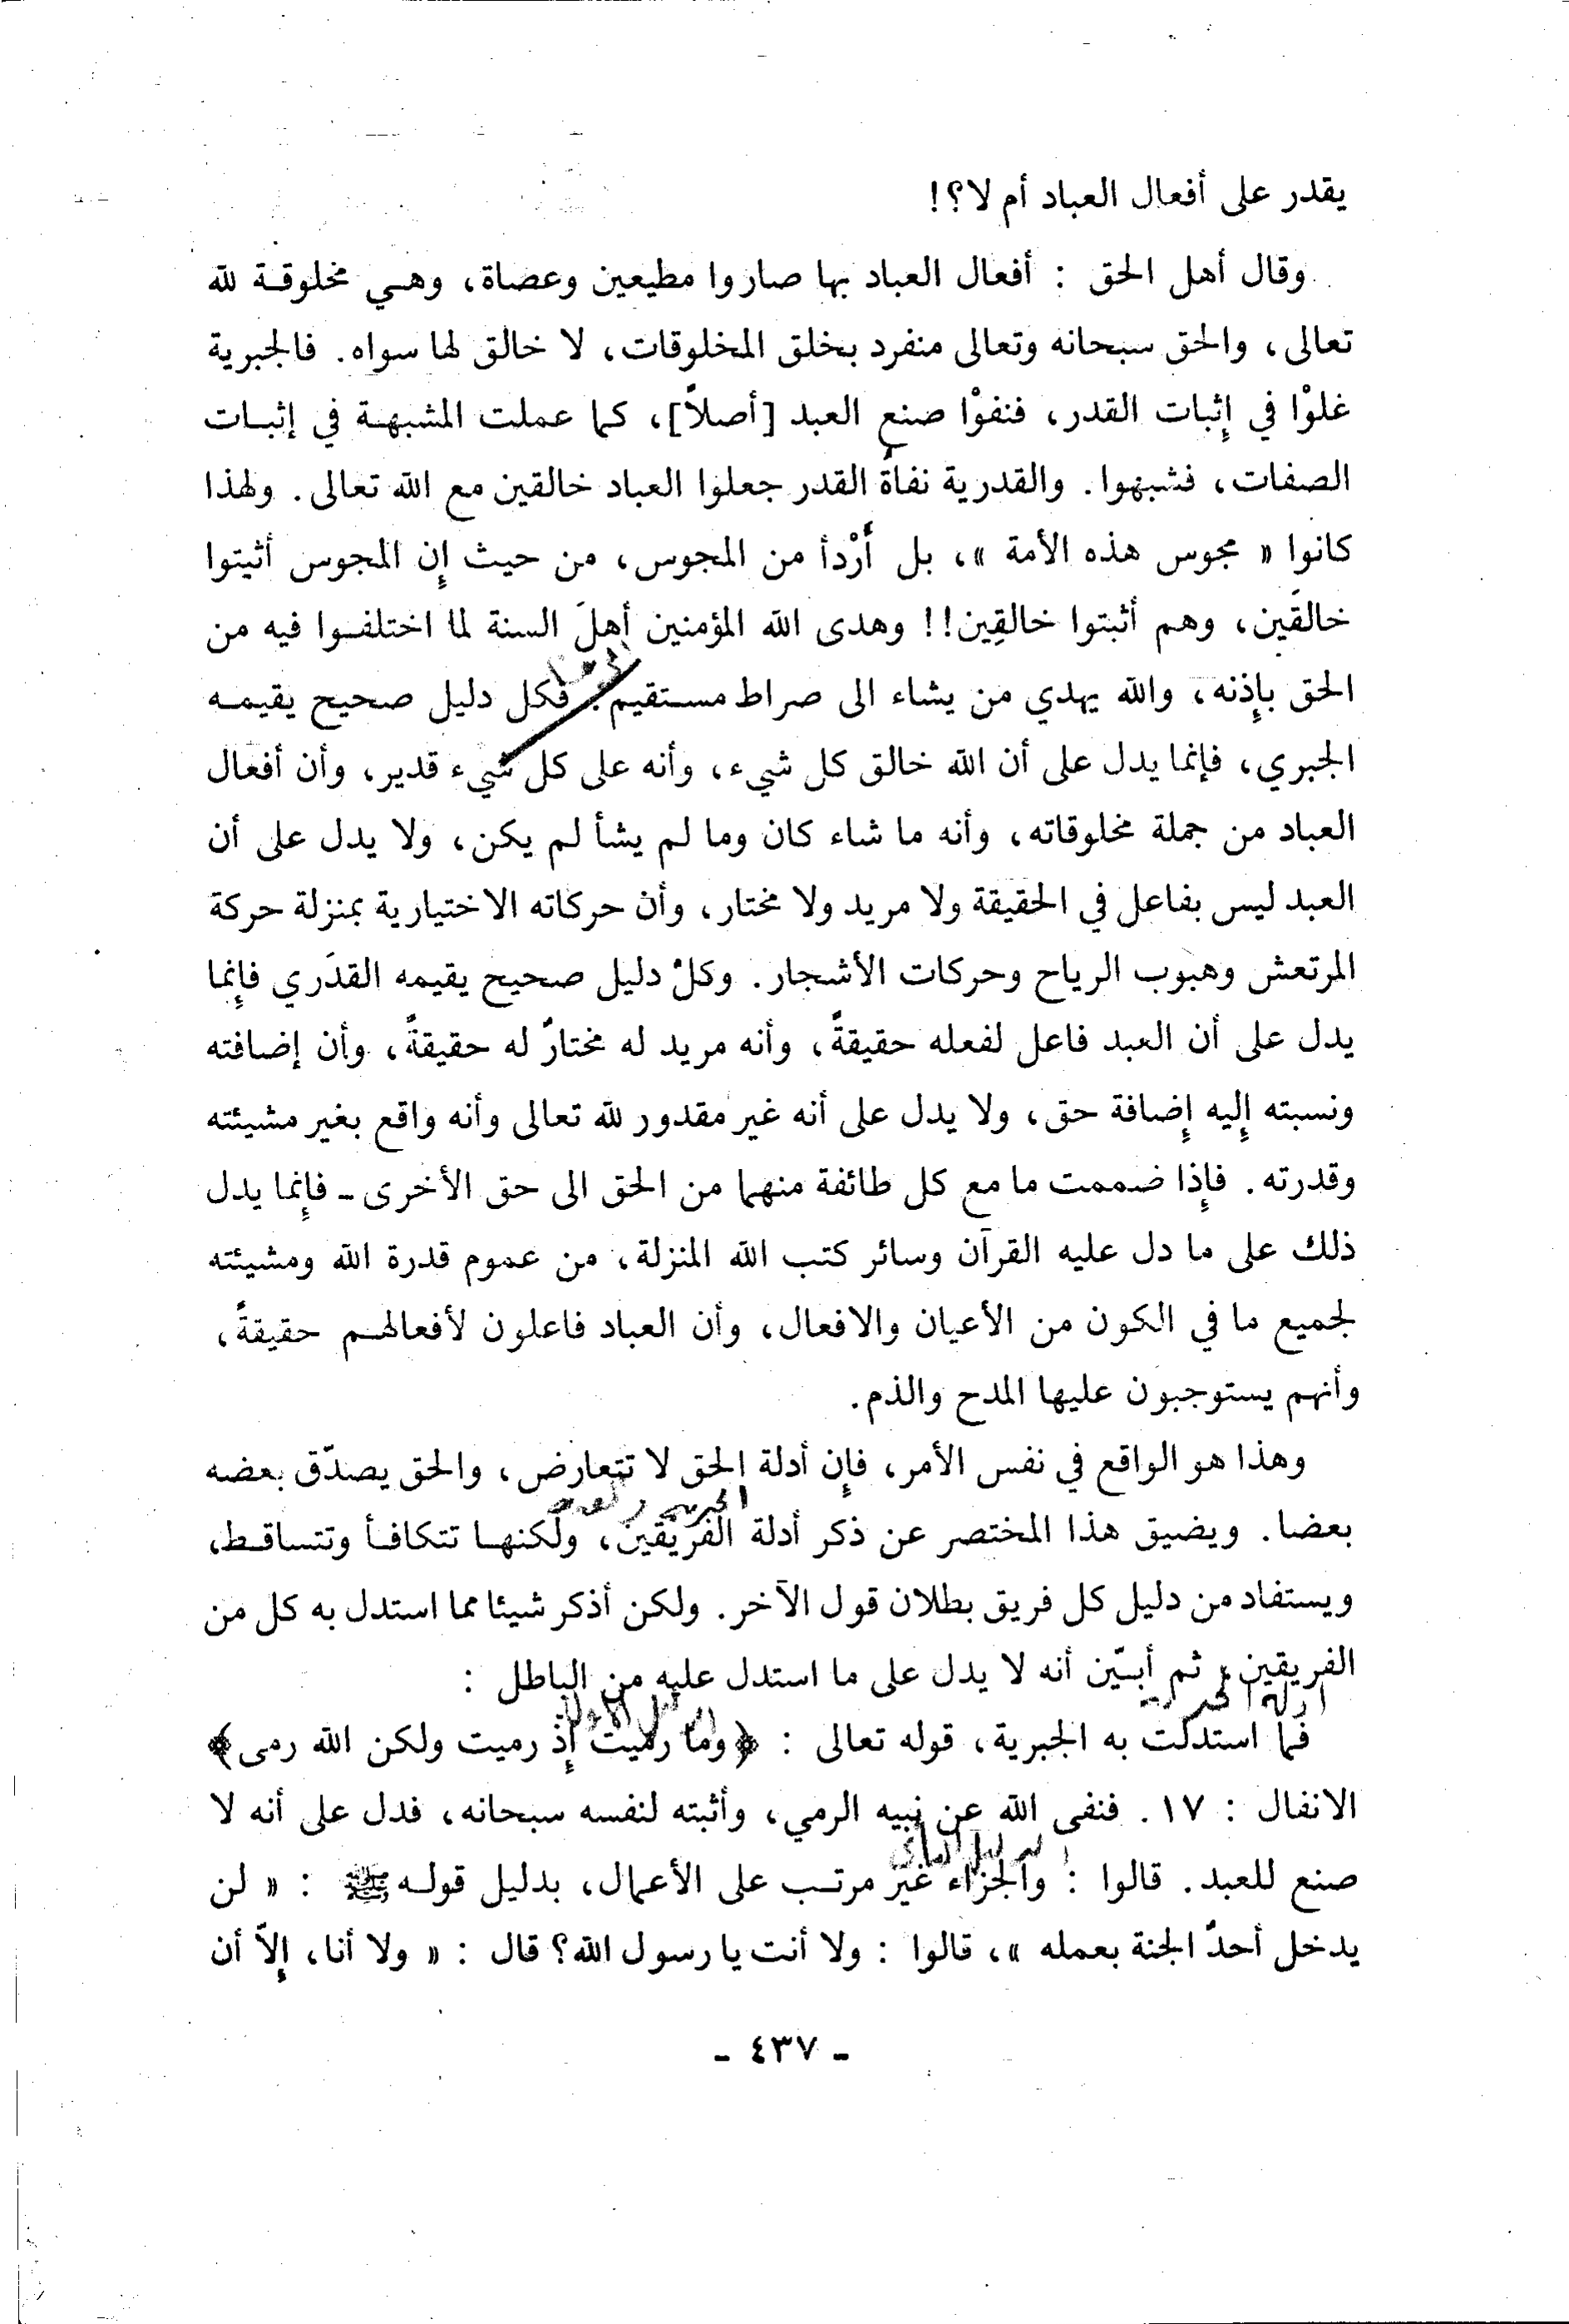 يقدر على أفعال العباد أم لا؟!
وقال أهل الحق : أفعال العباد بها صاروا مطيعين وعصاة، وهي مخلوقة لله
تعالى، والحق سبحانه وتعالى منفرد بخلق المخلوقات، لا خالق لها سواه. فالجبرية
غلوْا في إِثبات القدر، فنفوْا صنع العبد [أصلاً]، كما عملت المشبهة في إثبات
الصفات، فشبهوا. والقدرية نفاةُ القدر جعلوا العباد خالقين مع الله تعالى. ولهذا
كانوا « مجوس هذه الأمة »، بل أَرْدأ من المجوس، من حيث إِن المجوس أثبتوا
خالقَين، وهم أثبتوا خالقِين!! وهدى الله المؤمنين أهلَ السنة لما اختلفوا فيه من
الحق بإِذنه، والله يهدي من يشاء الى صراط مستقيم. فكل دليل صحيح يقيمه
الجبري، فإنما يدل على أن الله خالق كل شيء، وأنه على كل شيء قدير، وأن أفعال
العباد من جملة مخلوقاته، وأنه ما شاء كان وما لم يشأ لم يكن، ولا يدل على أن
العبد ليس بفاعل في الحقيقة ولا مريد ولا مختار، وأن حركاته الاختيارية بمنزلة حركة
المرتعش وهبوب الرياح وحركات الأشجار. وكلُ دليل صحيح يقيمه القدَري فإِنما
يدل على أن العبد فاعل لفعله حقيقةً، وأنه مريد له مختارٌ له حقيقةً، وأن إضافته
ونسبته إِليه إِضافة حق، ولا يدل على أنه غير مقدور لله تعالى وأنه واقع بغير مشيئته
وقدرته. فإِذا ضممت ما مع كل طائفة منهما من الحق الى حق الأخرى ـ فإِنما يدل
ذلك على ما دل عليه القرآن وسائر كتب الله المنزلة، من عموم قدرة الله ومشيئته
لجميع ما في الكون من الأعيان والافعال، وأن العباد فاعلون لأفعالهم حقيقةً،
وأنهم يستوجبون عليها المدح والذم.
وهذا هو الواقع في نفس الأمر، فإِن أدلة الحق لا تتعارض، والحق يصدّق بعضه
بعضا. ويضيق هذا المختصر عن ذكر أدلة الفريقين، ولكنها تتكافأ وتتساقط،
ويستفاد من دليل كل فريق بطلان قول الآخر. ولكن أذكر شيئا مما استدل به كل من
الفريقين، ثم أبيّن أنه لا يدل على ما استدل عليه من الباطل :
أدلة الجبرية
الدليل الأول
فما استدلت به الجبرية، قوله تعالى : ﴿وما رميت إِذ رميت ولكن الله رمى﴾
الانفال : ١٧. فنفى الله عن نبيه الرمي، وأثبته لنفسه سبحانه، فدل على أنه لا
الدليل الثاني
صنع للعبد. قالوا : والجزاء غير مرتب على الأعمال، بدليل قوله ﷺ : « لن
يدخل أحدٌ الجنة بعمله »، قالوا : ولا أنت يا رسول الله؟ قال : « ولا أنا، إِلاّ أن
ـ ٤٣٧ ـ